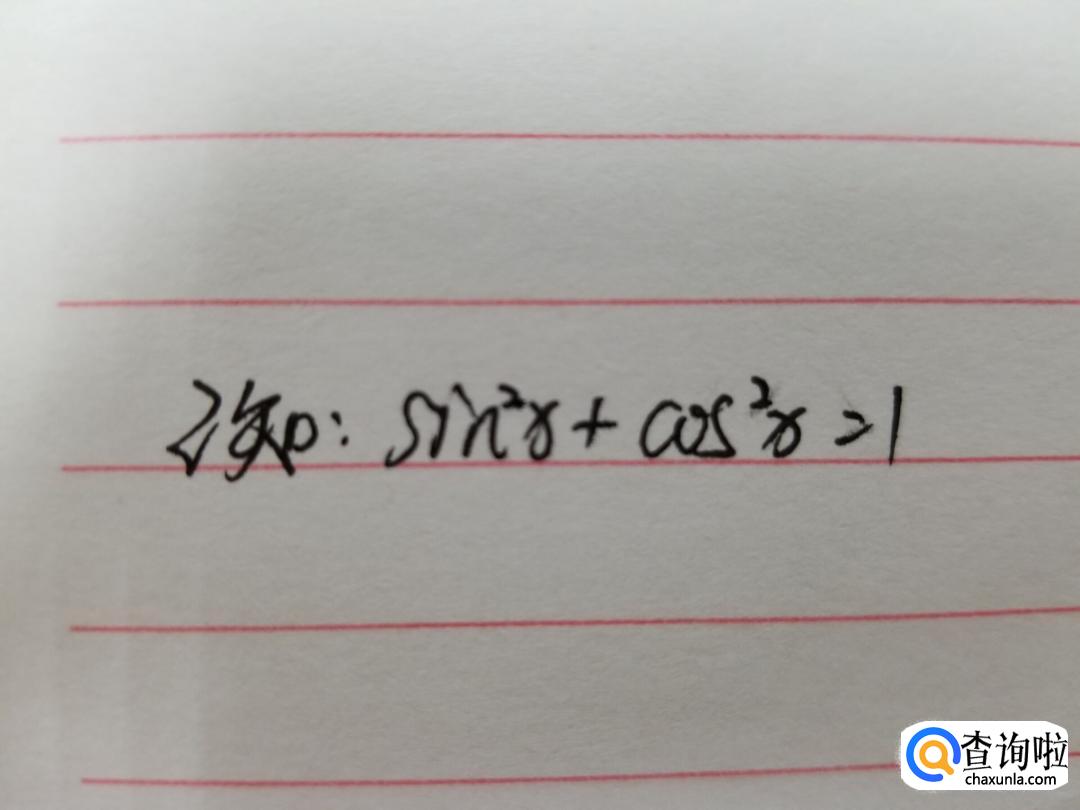 已知: sin²x + cos²x = 1
查询啦
chaxunla.com